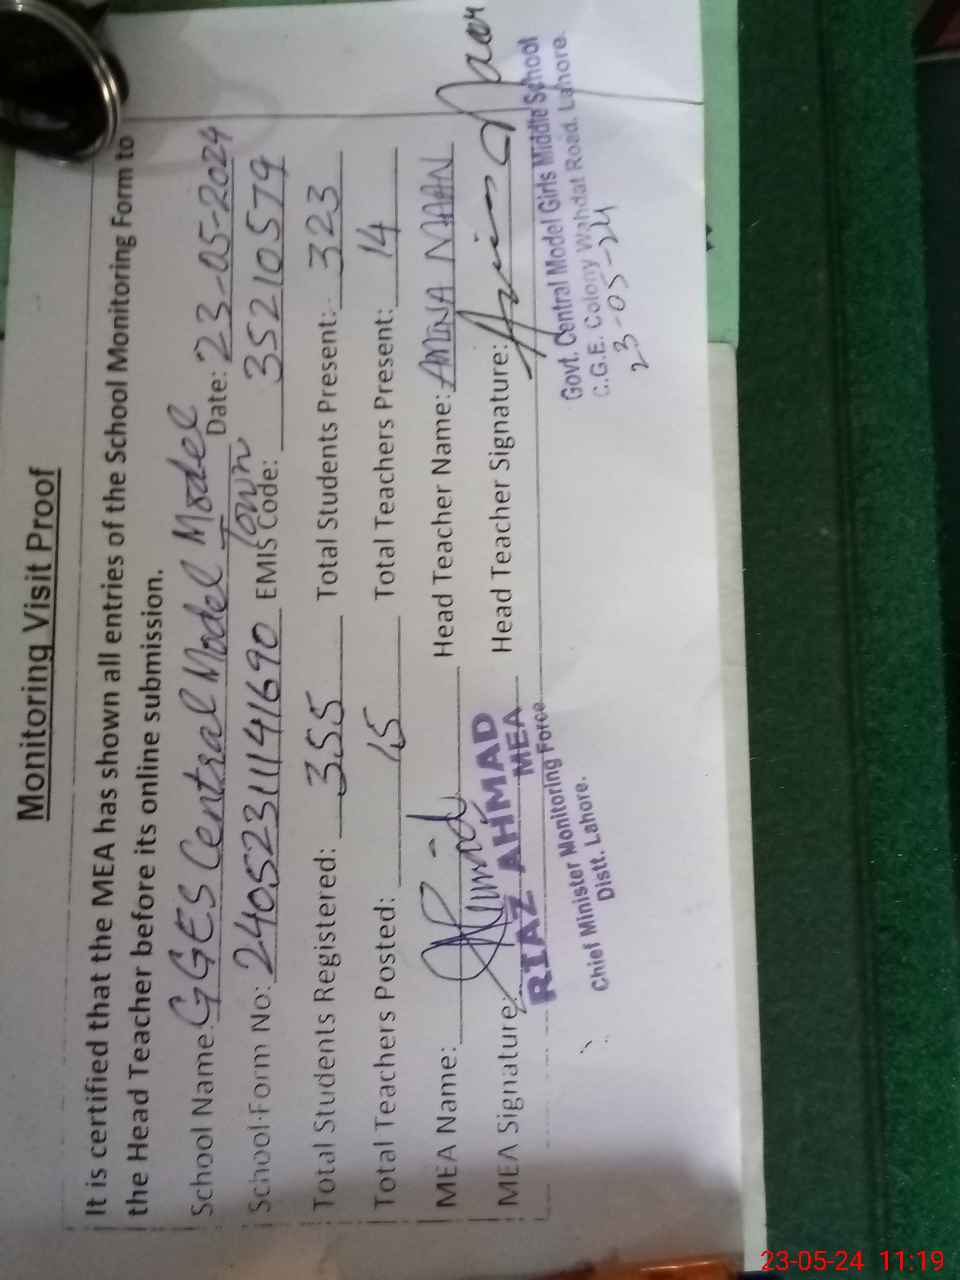 Monitoring Visit Proof
It is certified that the MEA has shown all entries of the School Monitoring Form to
the Head Teacher before its online submission.
School Name: GGES Central Model Model Town Date: 23-05-2024
School Form No: 24052311141690 EMIS Code: 35210579
Total Students Registered: 355 Total Students Present: 323
Total Teachers Posted: 15 Total Teachers Present: 14
MEA Name: Head Teacher Name: AMINA MAAN
MEA Signature: Head Teacher Signature: Amina Maan
RIAZ AHMAD
MEA
Chief Minister Monitoring Force
Distt. Lahore.
Govt. Central Model Girls Middle School
C.G.E. Colony Wahdat Road, Lahore.
23-05-24
23-05-24 11:19